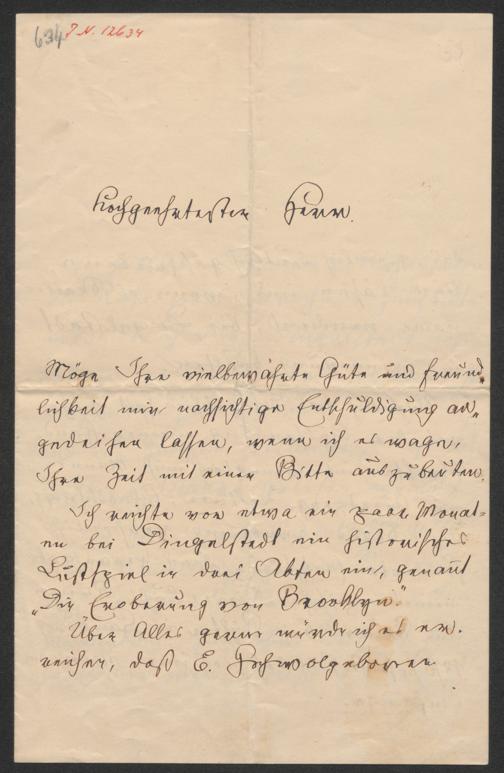 634 J. N. 12634
Hochgeehrtester Herr.
Möge Ihre vielbewährte Güte und Freund„
lichkeit mir nachsichtige Entschuldigung an„
gedeihen lassen, wenn ich es wage,
Ihre Zeit mit einer Bitte auszubeuten.
Ich reichte vor etwa ein paar Monat-
en bei Dingelstedt ein historisches
Lustspiel in drei Akten ein, genannt
„Die Eroberung von Brooklyn."
Über Alles gerne würde ich es er-
reichen, daß E. Hochwolgeboren